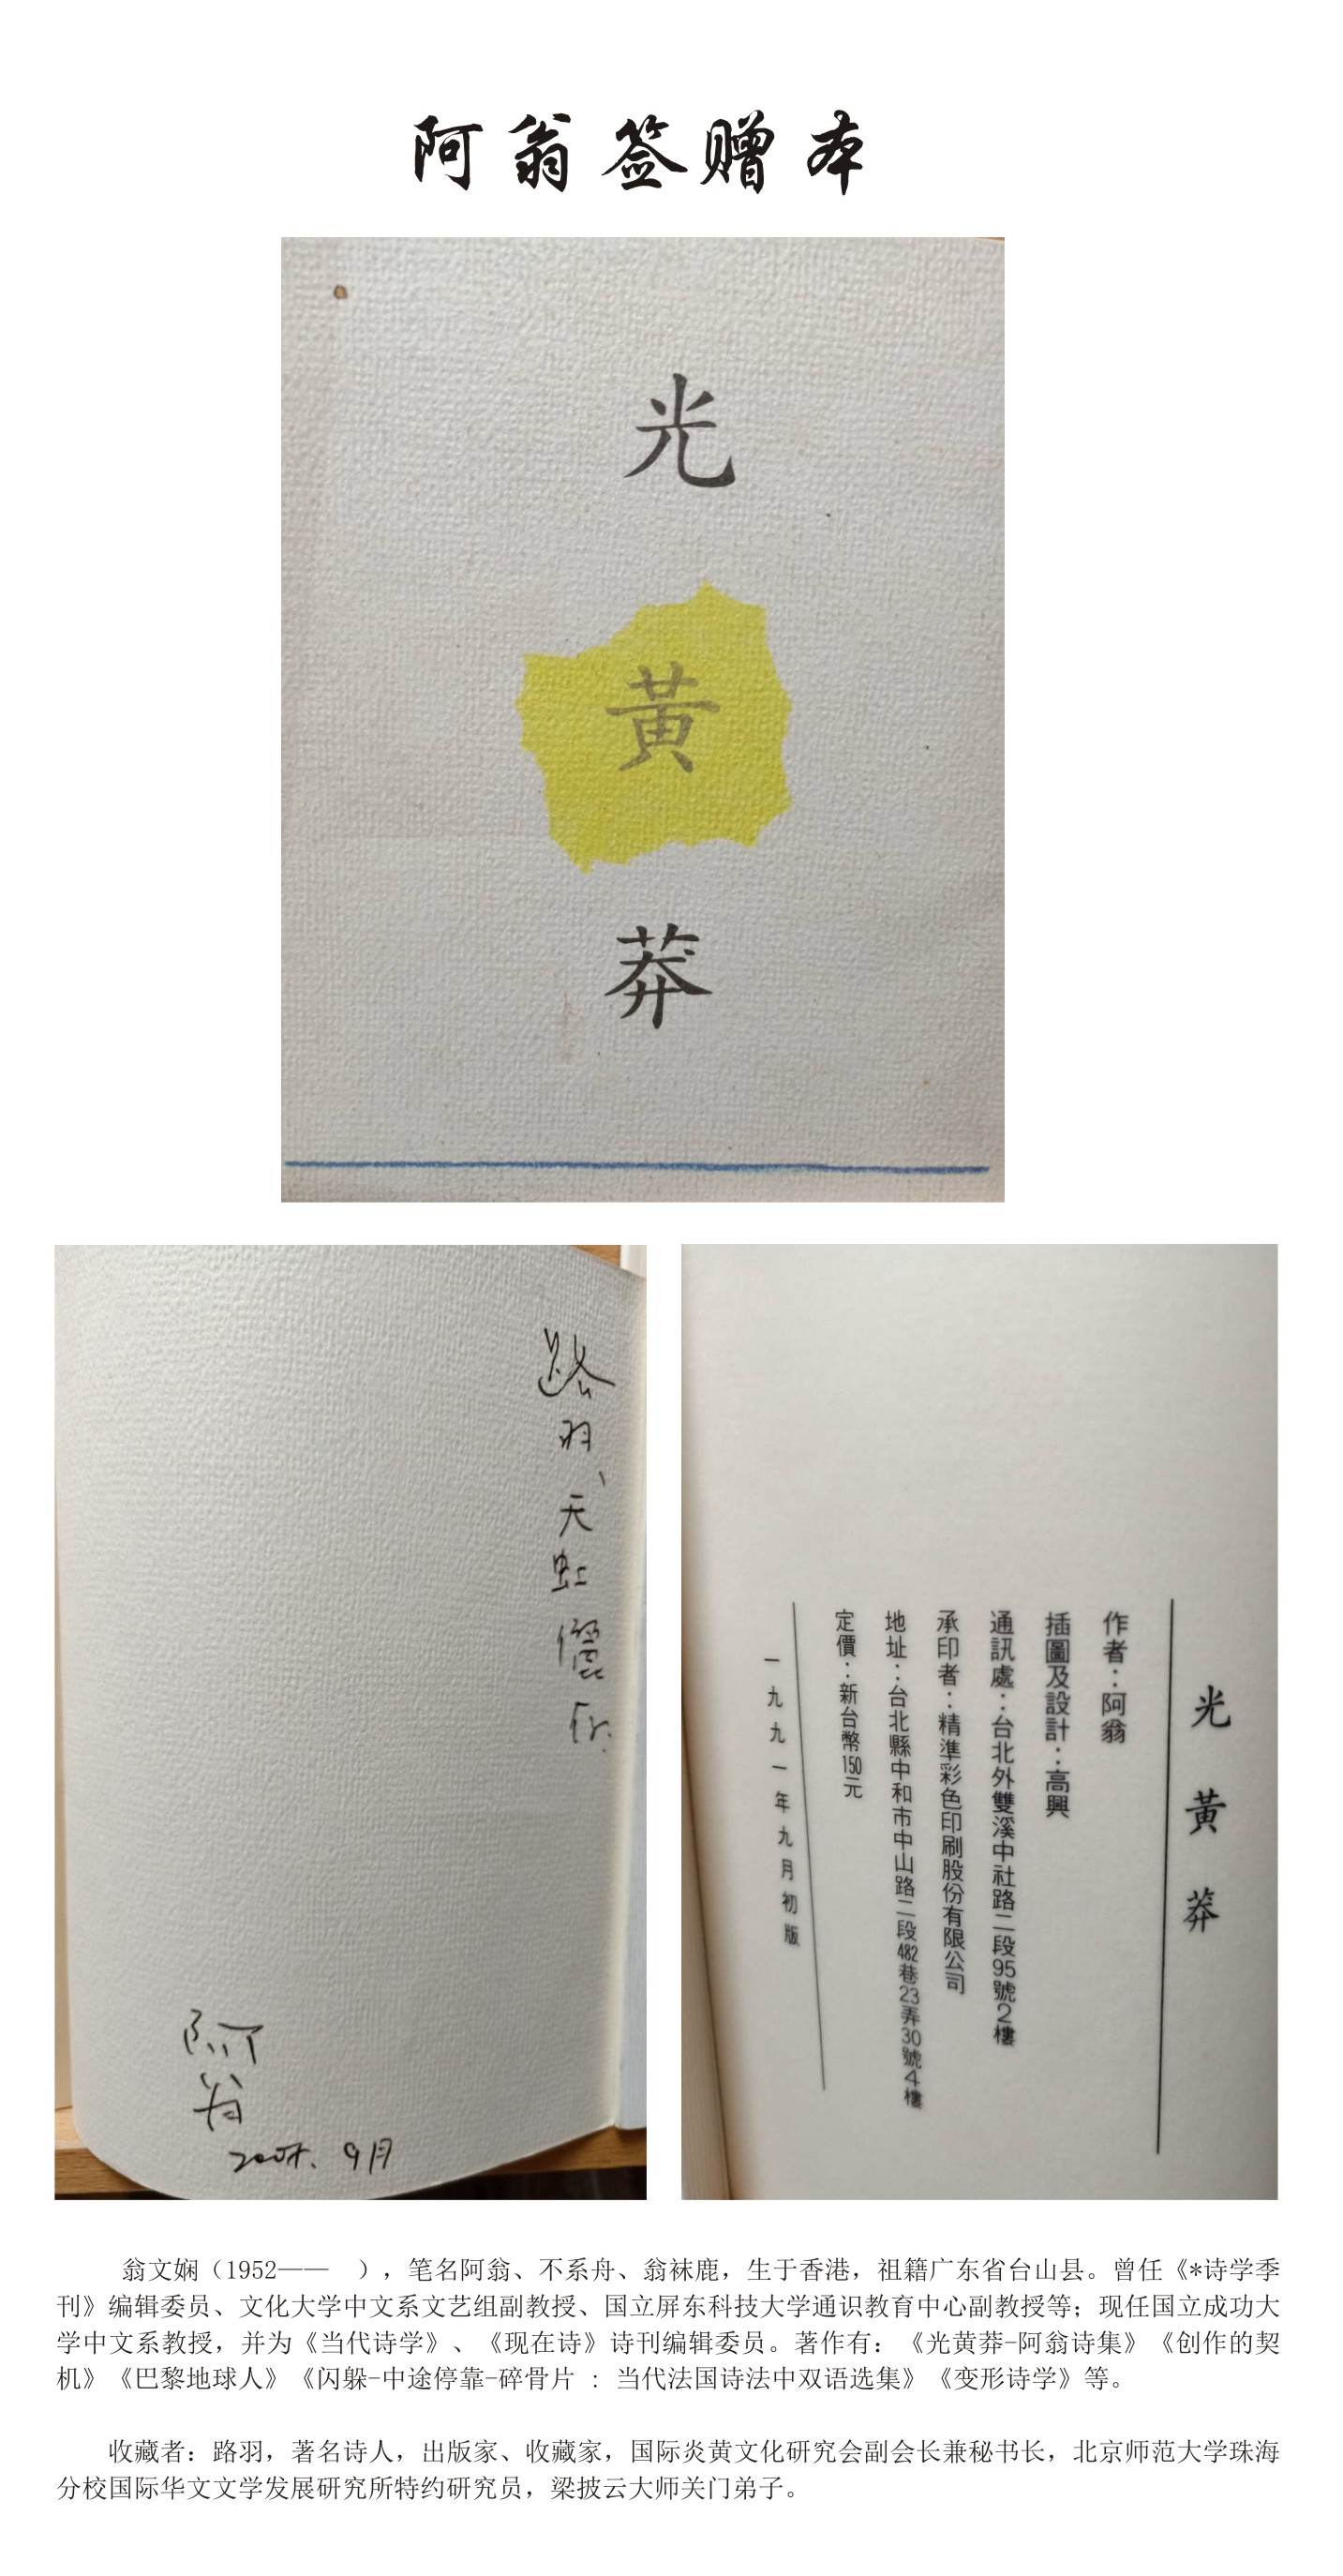 阿翁签赠本
光
黃
莽
路羽、天虹儷
阿翁
9月
光黃莽
作者：阿翁
插圖及設計：高興
通訊處：台北外雙溪中社路二段95號2樓
承印者：精準彩色印刷股份有限公司
地址：台北縣中和市中山路二段482巷23弄30號4樓
定價：新台幣150元
一九九一年九月初版
翁文娴（1952——　），笔名阿翁、不系舟、翁袜鹿，生于香港，祖籍广东省台山县。曾任《*诗学季
刊》编辑委员、文化大学中文系文艺组副教授、国立屏东科技大学通识教育中心副教授等；现任国立成功大
学中文系教授，并为《当代诗学》、《现在诗》诗刊编辑委员。著作有：《光黄莽-阿翁诗集》《创作的契
机》《巴黎地球人》《闪躲-中途停靠-碎骨片 : 当代法国诗法中双语选集》《变形诗学》等。
收藏者：路羽，著名诗人，出版家、收藏家，国际炎黄文化研究会副会长兼秘书长，北京师范大学珠海
分校国际华文文学发展研究所特约研究员，梁披云大师关门弟子。